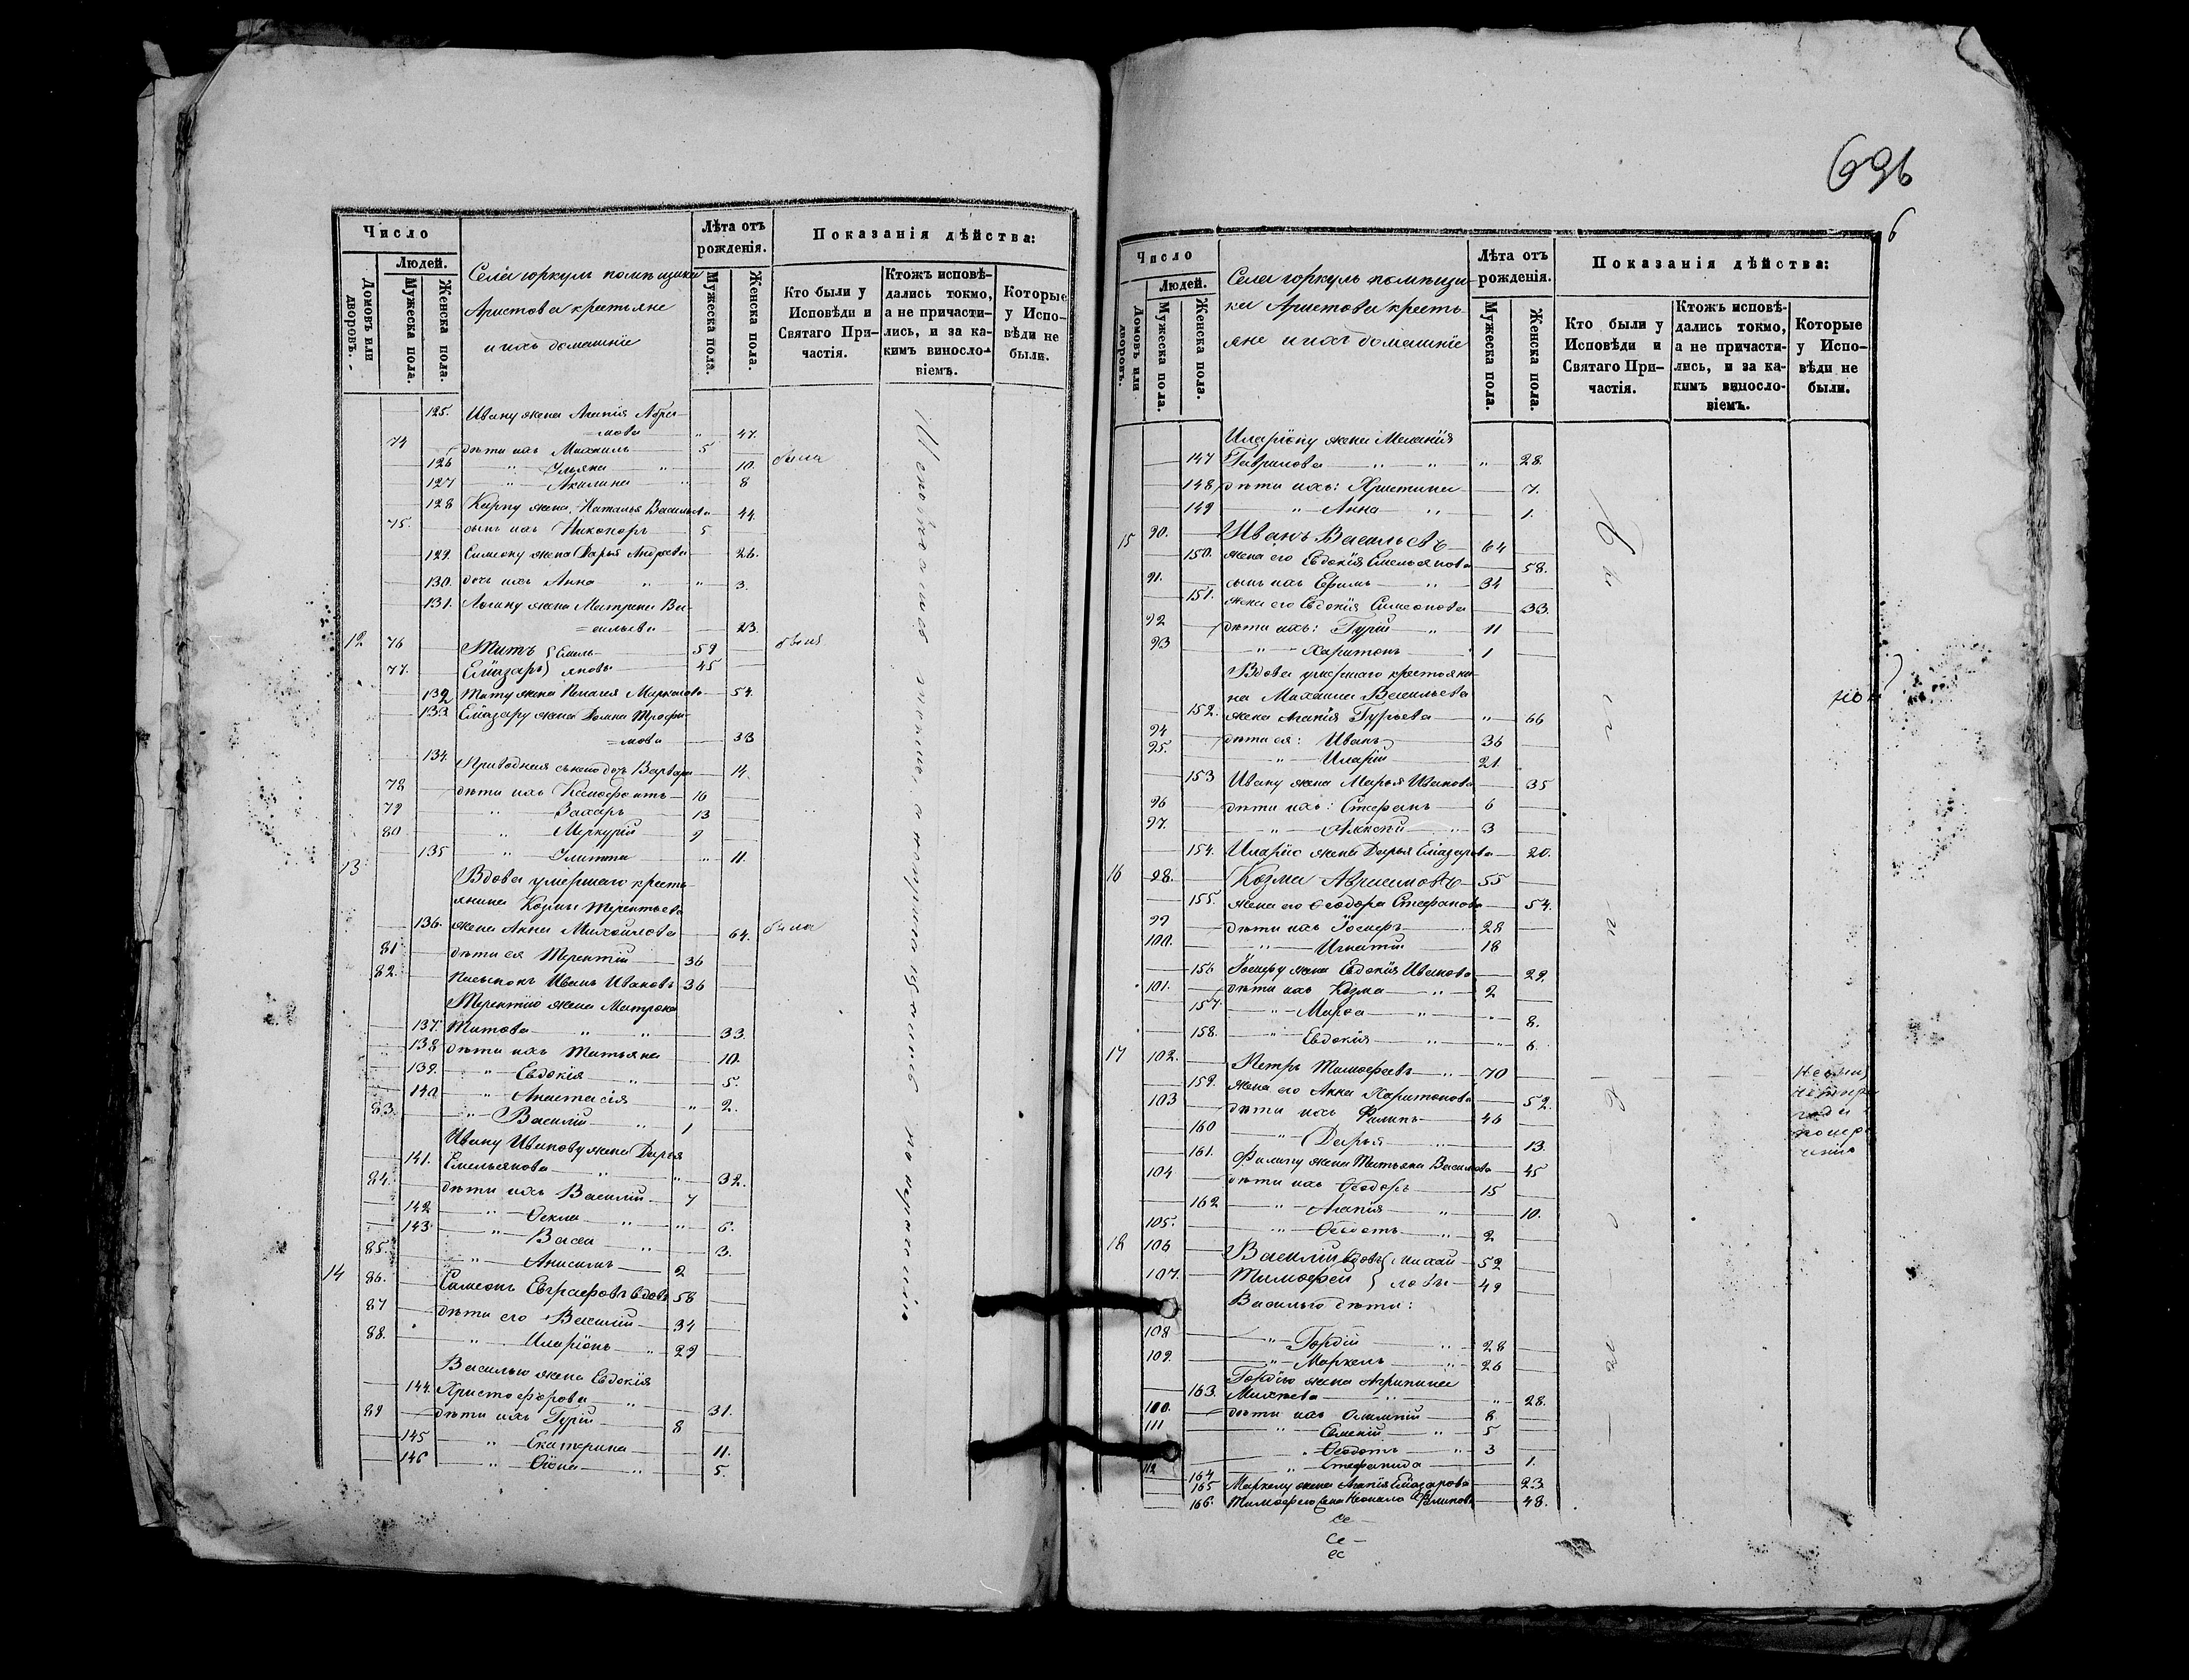 Число
Людей.
Домовъ или дворовъ.
Мужеска пола.
Женска пола.
Села горкулъ помѣщика
Аристова крестьяне
и ихъ домашніе
Лѣта отъ рожденія.
Мужеска пола.
Женска пола.
Показанія дѣйства:
Кто были у Исповѣди и Святаго Причастія.
Ктожъ исповѣдались токмо, а не причастились, и за какимъ винословіемъ.
Которые у Исповѣди не были.
125. Ивану жена Агапія Абра-
=мова " 47.
74 дѣти ихъ Михаилъ 5
126 " Ульяна " 10. была
127 " Акилина " 8
128 Карпу жена Наталья Васильева 44.
75. сынъ ихъ Никоноръ 5
129. Симеону жена Дарья Андреева 26.
130. дочь ихъ Анна " " 3.
131. Логину жена Матрена Ва-
=сильева 23.
12 76 Титъ { Емель- 59 были
77. Елїазаръ } яновы 45
132 Титу жена Пелагея Маркелова 54.
133. Елїазару жена Домна Трофи-
=мова 33
134. дочь Варвара 14.
78 дѣти ихъ Ксенофонтъ 16
79 " Захаръ 13
80 " Меркурій 9
135 " Улитта " 11.
13 Вдова умершаго кресть-
янина Козмы Терентьева
136. жена Анна Михайлова 64. была
81 дѣти ея Терентій 36
82. Пасынокъ Иванъ Ивановъ 36
Терентію жена Матрона
137. Титова " " 33.
138 дѣти ихъ Татьяна 10.
139. " Евдокія " 5.
140 " Анастасія " 2.
83. " Василій " 1
Ивану Иванову жена Дарья
141. Емельянова " " 32.
84. дѣти ихъ Василій 7
142 " Ѳекла " " 6.
143. " Васса " 3.
85. " Анисимъ 2
14 86. Симеонъ Евграфовъ вдовъ 58
87 дѣти его Василій 34
88. " Иларіонъ " 29
Василью жена Евдокія
144. Христофорова " 31.
89 дѣти ихъ Гурій 8
145 " Екатерина 11.
146 " " 5.
696
6
Число
Людей.
Домовъ или дворовъ.
Мужеска пола.
Женска пола.
Села горкулъ помѣщи-
ка Аристова кресть-
яне и ихъ домашніе
Лѣта отъ рожденія.
Мужеска пола.
Женска пола.
Показанія дѣйства:
Кто были у Исповѣди и Святаго Причастія.
Ктожъ исповѣдались токмо, а не причастились, и за какимъ винословіемъ.
Которые у Исповѣди не были.
Иларіону жена Меланія
147 Гаврилова " " " 28.
148 дѣти ихъ: Христина 7.
149 " Анна " 1.
15 90. Иванъ Васильевъ 64
150. жена его Евдокія Емельянова 58.
91. сынъ ихъ Ефимъ " 34
151. жена его Евдокія Симеонова 33.
92 дѣти ихъ: Гурій " 11
93 " Харитонъ 1
Вдова умершаго крестьяни-
на Михаила Васильева
152. жена Агапія Гурьева " 66
94 дѣти ея: Иванъ 36
95. " Иларій 21
153 Ивану жена Марья Иванова 35
96 дѣти ихъ: Стефанъ 6
97. " Алексѣй " 3
154. Иларію жена Дарья Елїазарова 20.
16 98. Козма Авраамовъ 55
155. жена его Ѳеодора Стефанова 54.
99 дѣти ихъ Іосифъ 28
100. " Игнатій 18
156 Іосифу жена Евдокія Иванова 29.
101. дѣти ихъ Козма " 2
157. " Марѳа " " 8.
158. " Евдокія " " 6.
17 102. Петръ Тимоѳеевъ " 70
159. жена его Анна Харитонова 52.
103 дѣти ихъ Филипъ 46
160 " Дарья " 13.
161. Филипу жена Татьяна Василева 45
104 дѣти ихъ Ѳеодоръ 15
162 " Агапія " 10.
105. " Ѳеодотъ 2
18 106 Василій вдовъ { Михай- 52
107. Тимоѳей } ловы 49
Василью дѣти:
108 " Гордій " 28
109. " Маркелъ " 26
Гордію жена Агрипина
163. Михѣева " " 28.
100. дѣти ихъ Олимпій 8.
111 " Евменій " 5
" Ѳеодотъ " 3
112 164 " Стефанида 1.
165 Маркелу жена Агапія Елїазарова 23
166. Тимоѳею жена Неонила Филипова 48.